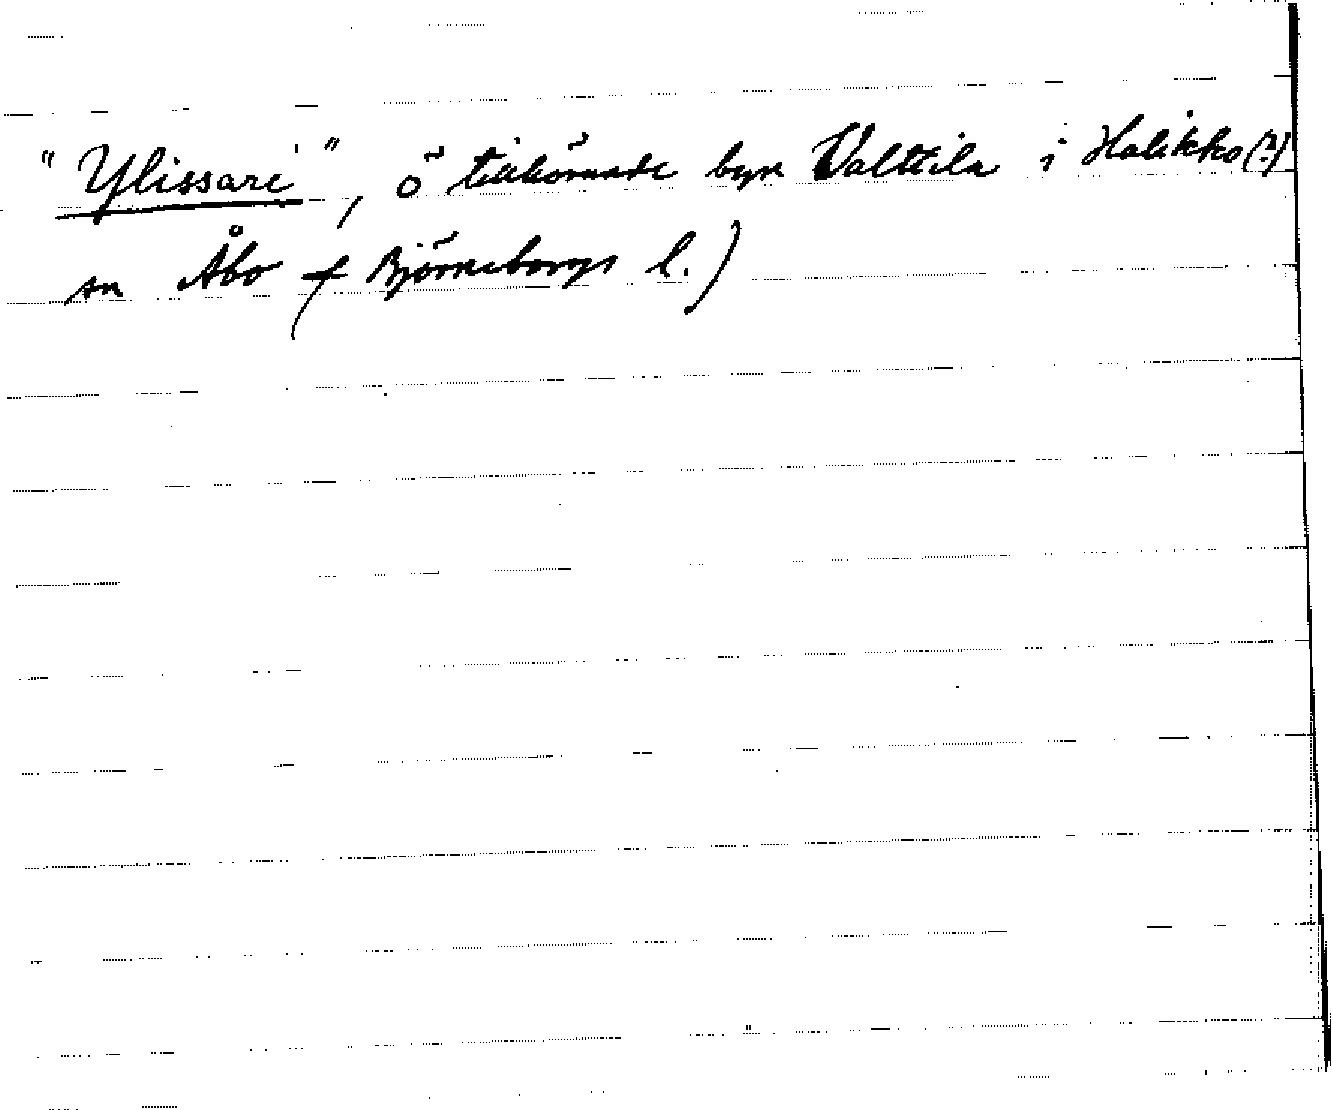 "Ylissari", ö tillhörande byn Valttila i Halikko (?)
sn Åbo & Björneborgs l.)